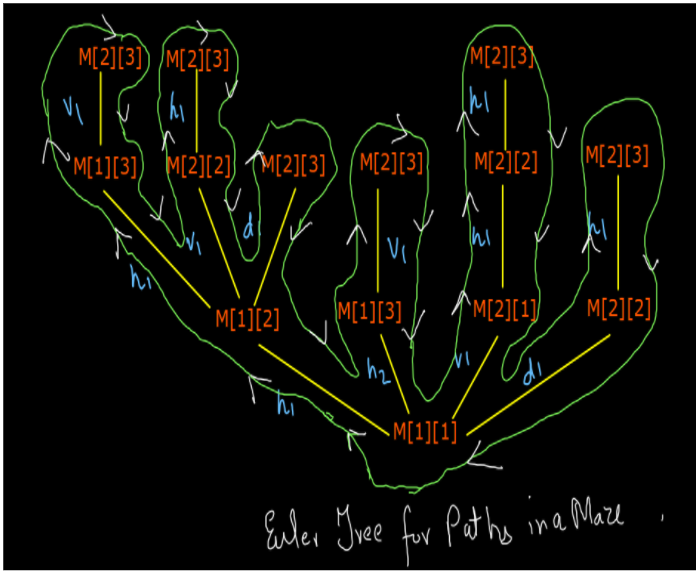 M[2][3] M[2][3] M[2][3]
v1 h1 h1
M[1][3] M[2][2] M[2][3] M[2][3] M[2][2] M[2][3]
h1 v1 d1 v1 h1 h1
M[1][2] M[1][3] M[2][1] M[2][2]
h1 h2 v1 d1
M[1][1]
Euler Tree for Paths in a Maze .